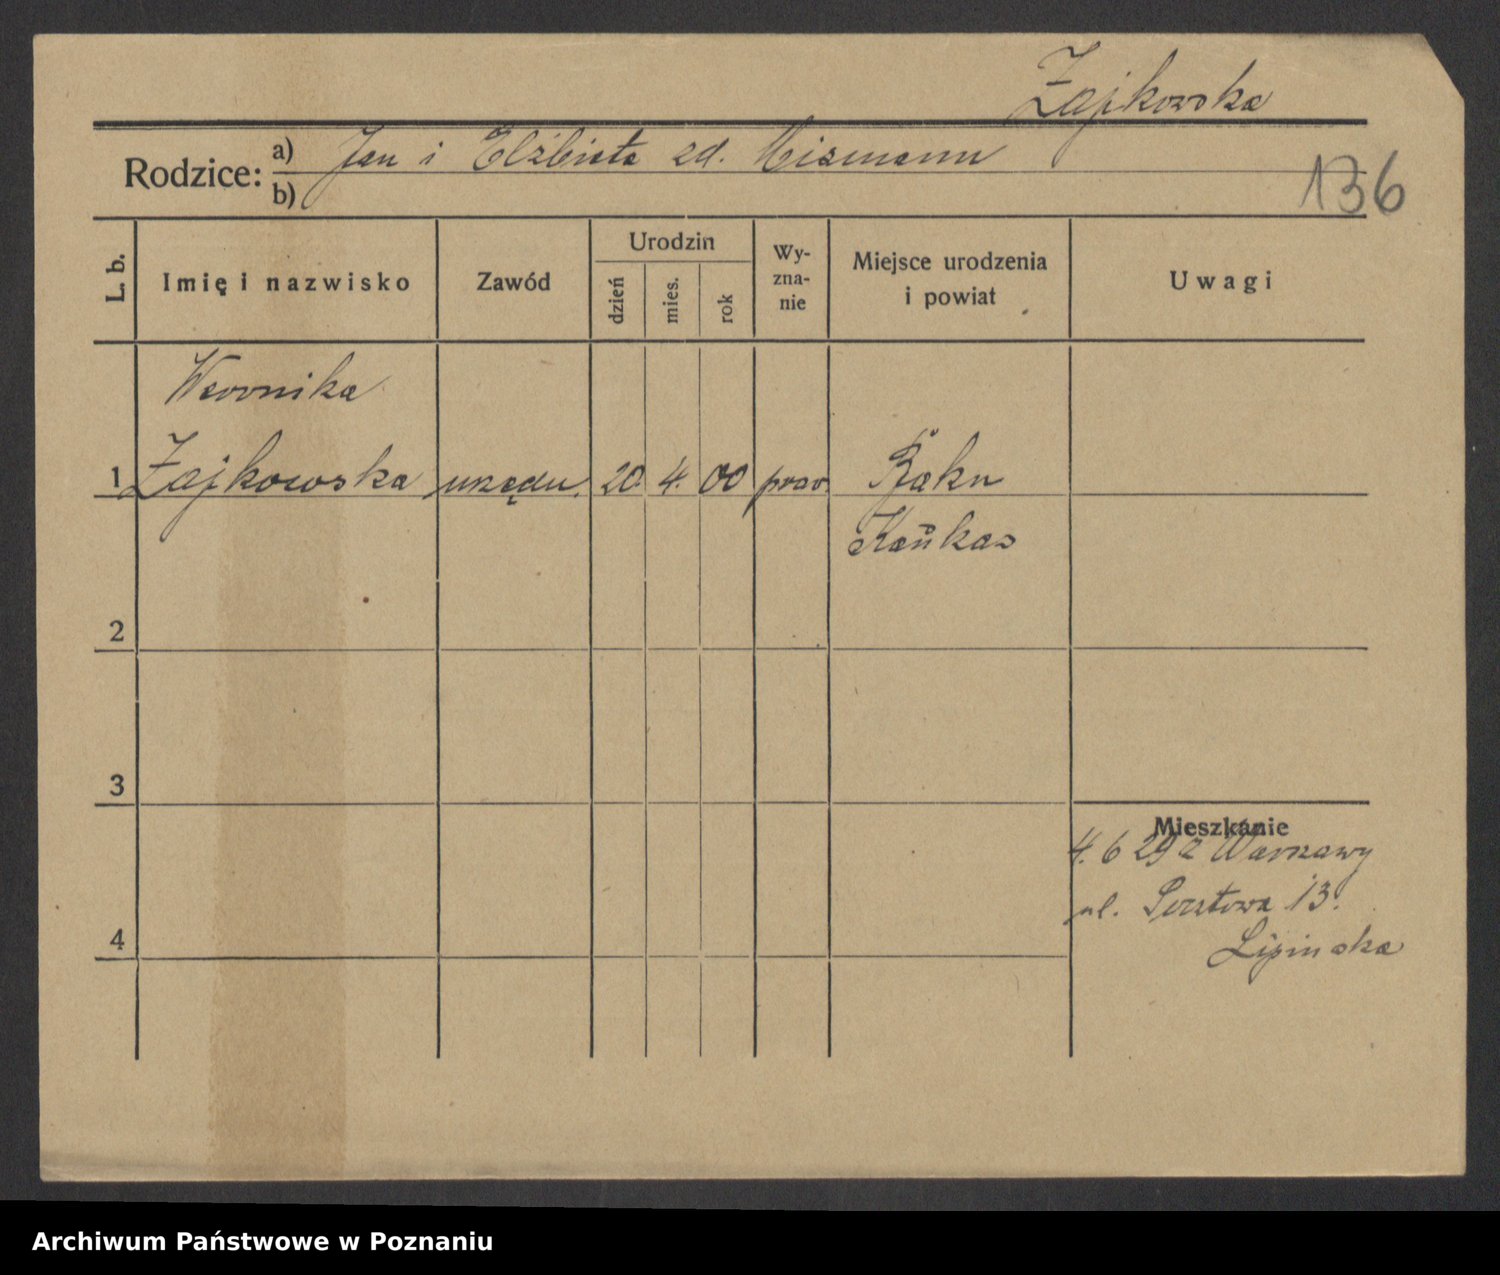 Zajkowska
Rodzice: a) Jan i Elżbieta zd.
b)
136
L. b.
Imię i nazwisko
Zawód
Urodzin
dzień
mies.
rok
Wy-
zna-
nie
Miejsce urodzenia
i powiat
Uwagi
Weronika
1 Zajkowska urzędn. 20. 4. 00 praw. Baku
Kaukas
2
3
Mieszkanie
4. 6 29 z Warszawy
ul. Pocztowa 13.
4
Lipinska
Archiwum Państwowe w Poznaniu